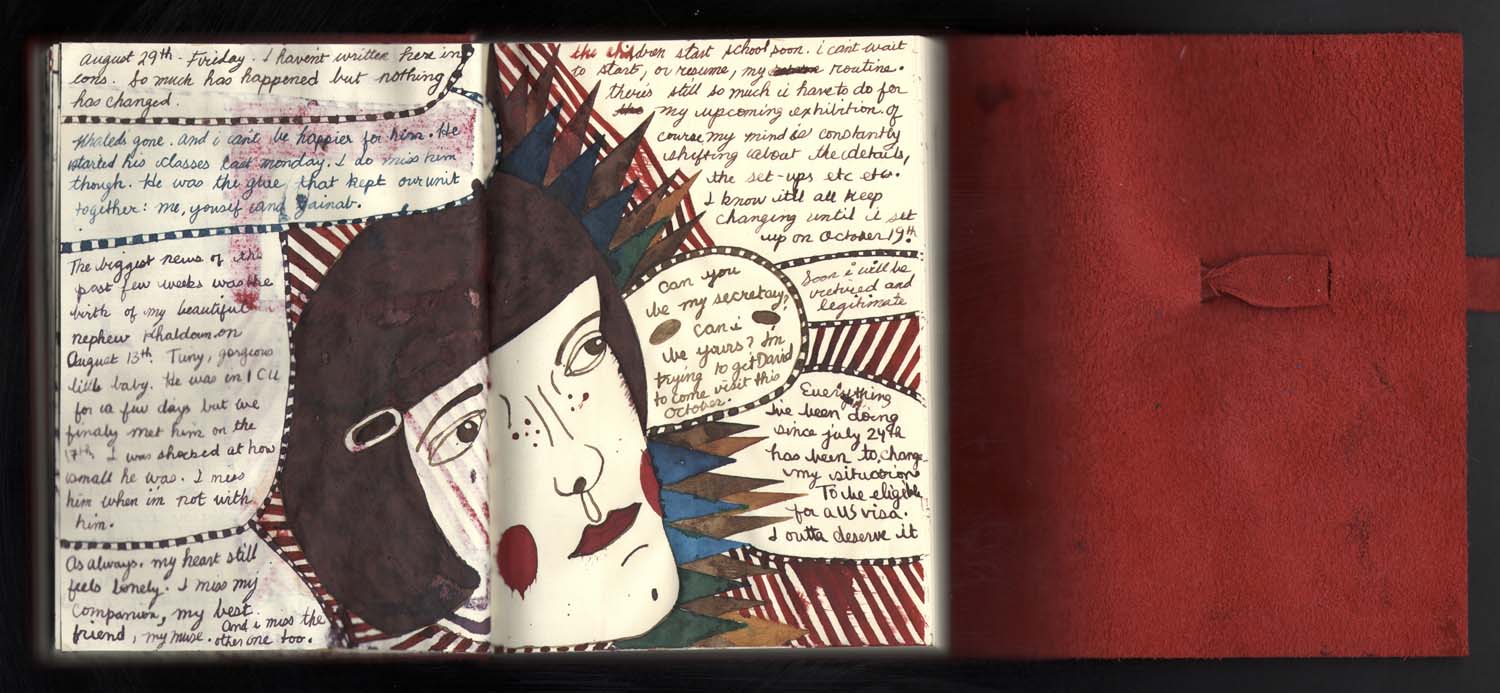 August 29th - Firiday. I haven't written here in
eons. So much has happened but nothing
has changed.
Khaleds gone. and i cant be happier for him. He
started his classes last monday. I do miss him
though. He was the glue that kept our unit
together: me, yousif and Zainab.
The biggest news of the
past few weeks was the
birth of my beautiful
nephew Khaldoun on
August 13th. Tiny, gorgeous
little baby. He was in ICU
for a few days but we
finaly met him on the
17th. I was shocked at how
small he was. I miss
him when im not with
him.
As always. my heart still
feels lonely. I miss my
companion, my best
friend, my muse. And i miss the
other one too.
the children start school soon. i cant wait
to start, or resume, my routine.
there's still so much i have to do for
the my upcoming exhibition. of
course my mind is constantly
shifting about the details,
the set-ups etc etc.
I know itll all keep
changing until i set
up on October 19th.
Can you
be my secretary?
can i
be yours? Im
trying to get David
to come visit this
October.
Soon i will be
retired and
legitimate
Everything
ive been doing
since july 24th
has been to change
my situation
To be eligible
for a US visa.
I outta deserve it